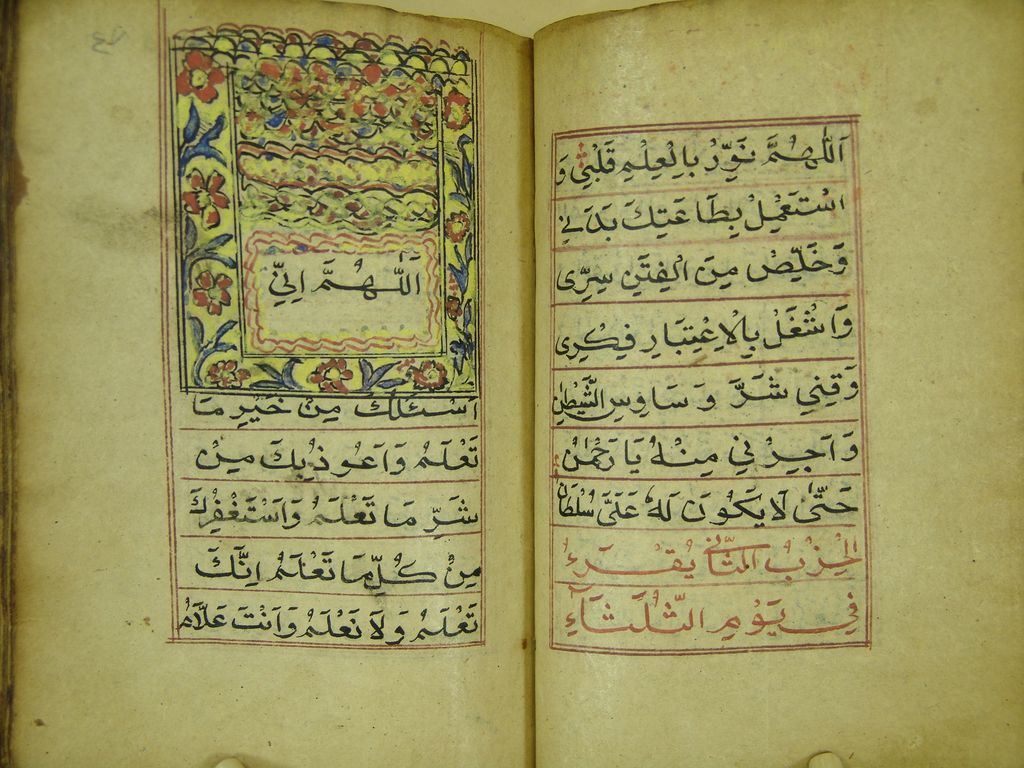 اَللّٰهُمَّ نَوِّرْ بِالْعِلْمِ قَلْبِيْ وَ
اسْتَعْمِلْ بِطَاعَتِكَ بَدَنِيْ
وَخَلِّصْ مِنَ الْفِتَنِ سِرِّى
وَاشْغَلْ بِالْاِعْتِبَارِ فِكْرِى
وَقِنِي شَرَّ وَسَاوِسِ الشَّيْطٰنِ
وَاَجِرْنِي مِنْهُ يَا رَحْمٰنُ
حَتّٰى لَا يَكُوْنَ لَهُ عَلَىَّ سُلْطَانٌ
اَلْحِزْبُ الثَّانِي يُقْرَءُ
فِي يَوْمِ الثُّلَثَاءِ
اَللّٰهُمَّ اِنِّيْ
اَسْئَلُكَ مِنْ خَيْرِ مَا
تَعْلَمُ وَاَعُوْذُ بِكَ مِنْ
شَرِّ مَا تَعْلَمُ وَاَسْتَغْفِرُكَ
مِنْ كُلِّ مَا تَعْلَمُ اِنَّكَ
تَعْلَمُ وَلَا نَعْلَمُ وَاَنْتَ عَلَّامُ